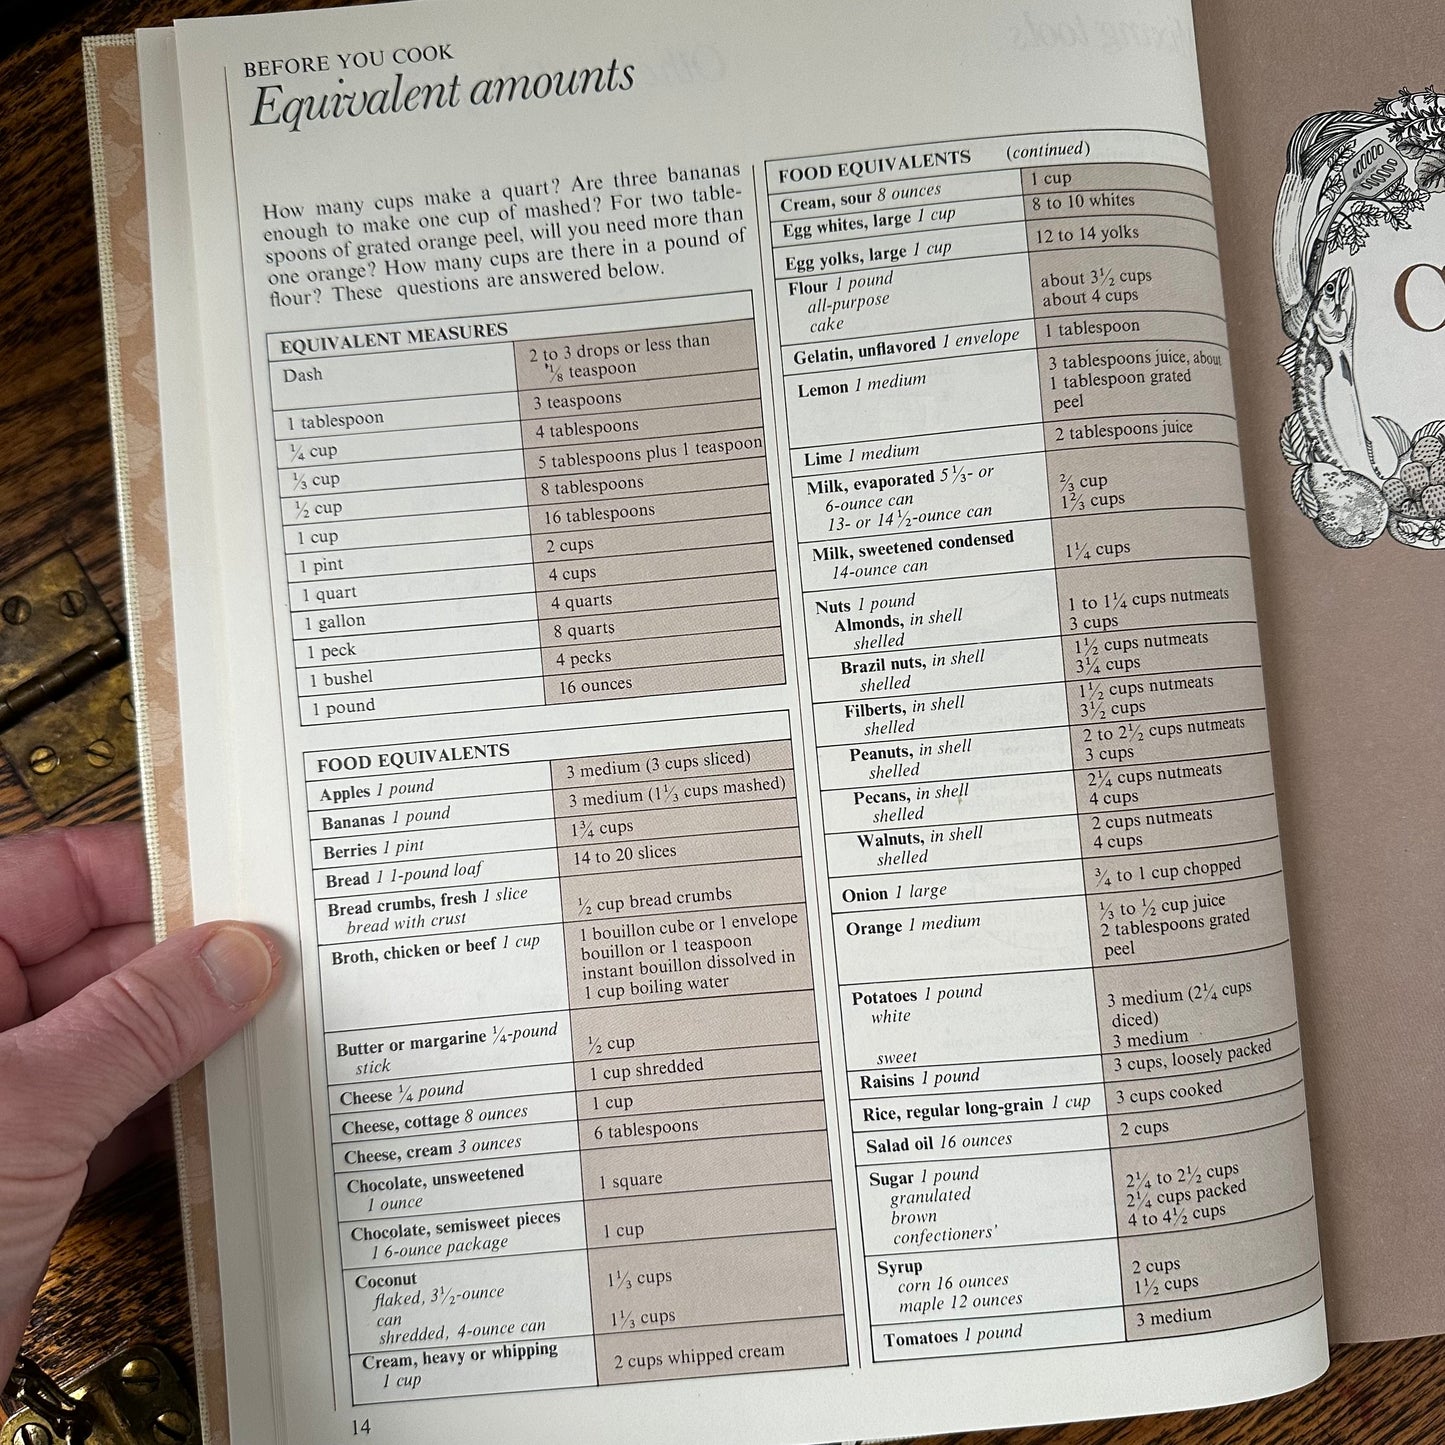 BEFORE YOU COOK
Equivalent amounts
How many cups make a quart? Are three bananas
enough to make one cup of mashed? For two table-
spoons of grated orange peel, will you need more than
one orange? How many cups are there in a pound of
flour? These questions are answered below.
EQUIVALENT MEASURES
Dash 2 to 3 drops or less than
⅛ teaspoon
1 tablespoon 3 teaspoons
¼ cup 4 tablespoons
⅓ cup 5 tablespoons plus 1 teaspoon
½ cup 8 tablespoons
1 cup 16 tablespoons
1 pint 2 cups
1 quart 4 cups
1 gallon 4 quarts
1 peck 8 quarts
1 bushel 4 pecks
1 pound 16 ounces
FOOD EQUIVALENTS
Apples 1 pound 3 medium (3 cups sliced)
Bananas 1 pound 3 medium (1⅓ cups mashed)
Berries 1 pint 1¾ cups
Bread 1 1-pound loaf 14 to 20 slices
Bread crumbs, fresh 1 slice
bread with crust ½ cup bread crumbs
Broth, chicken or beef 1 cup 1 bouillon cube or 1 envelope
bouillon or 1 teaspoon
instant bouillon dissolved in
1 cup boiling water
Butter or margarine ¼-pound
stick ½ cup
Cheese ¼ pound 1 cup shredded
Cheese, cottage 8 ounces 1 cup
Cheese, cream 3 ounces 6 tablespoons
Chocolate, unsweetened
1 ounce 1 square
Chocolate, semisweet pieces
1 6-ounce package 1 cup
Coconut
flaked, 3½-ounce 1⅓ cups
can
shredded, 4-ounce can 1⅓ cups
Cream, heavy or whipping
1 cup 2 cups whipped cream
14
FOOD EQUIVALENTS (continued)
Cream, sour 8 ounces 1 cup
Egg whites, large 1 cup 8 to 10 whites
Egg yolks, large 1 cup 12 to 14 yolks
Flour 1 pound
all-purpose about 3½ cups
cake about 4 cups
Gelatin, unflavored 1 envelope 1 tablespoon
Lemon 1 medium 3 tablespoons juice, about
1 tablespoon grated
peel
Lime 1 medium 2 tablespoons juice
Milk, evaporated 5⅓- or
6-ounce can ⅔ cup
13- or 14½-ounce can 1⅔ cups
Milk, sweetened condensed
14-ounce can 1¼ cups
Nuts 1 pound
Almonds, in shell 1 to 1¼ cups nutmeats
shelled 3 cups
Brazil nuts, in shell 1½ cups nutmeats
shelled 3¼ cups
Filberts, in shell 1½ cups nutmeats
shelled 3½ cups
Peanuts, in shell 2 to 2½ cups nutmeats
shelled 3 cups
Pecans, in shell 2¼ cups nutmeats
shelled 4 cups
Walnuts, in shell 2 cups nutmeats
shelled 4 cups
Onion 1 large ¾ to 1 cup chopped
Orange 1 medium ⅓ to ½ cup juice
2 tablespoons grated
peel
Potatoes 1 pound
white 3 medium (2¼ cups
diced)
sweet 3 medium
Raisins 1 pound 3 cups, loosely packed
Rice, regular long-grain 1 cup 3 cups cooked
Salad oil 16 ounces 2 cups
Sugar 1 pound
granulated 2¼ to 2½ cups
brown 2¼ cups packed
confectioners' 4 to 4½ cups
Syrup
corn 16 ounces 2 cups
maple 12 ounces 1½ cups
Tomatoes 1 pound 3 medium